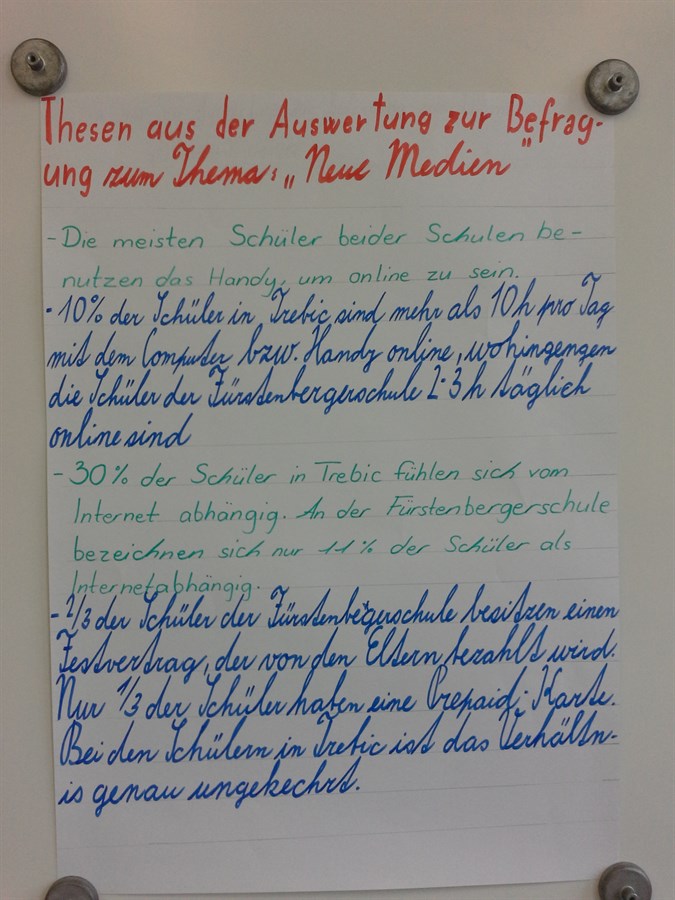 Thesen aus der Auswertung zur Befrag-
ung zum Thema: „Neue Medien"
- Die meisten Schüler beider Schulen be-
nutzen das Handy, um online zu sein.
- 10% der Schüler in Trebic sind mehr als 10h pro Tag
mit dem Computer bzw. Handy online, wohingengen
die Schüler der Fürstenbergerschule 2-3h täglich
online sind
- 30% der Schüler in Trebic fühlen sich vom
Internet abhängig. An der Fürstenbergerschule
bezeichnen sich nur 11% der Schüler als
Internetabhängig.
- 2/3 der Schüler der Fürstenbergerschule besitzen einen
Festvertrag, der von den Eltern bezahlt wird.
Nur 1/3 der Schüler haben eine Prepaid-Karte.
Bei den Schülern in Trebic ist das Verhältn-
is genau ungekechrt.